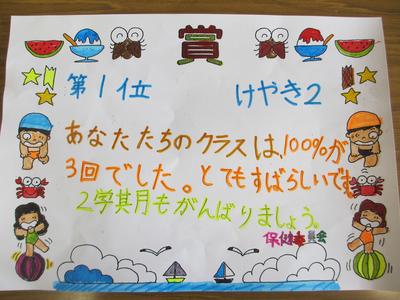 賞
第1位 けやき2
あなたたちのクラスは、100%が
3回でした。とてもすばらしいです。
2学期もがんばりましょう。
保健委員会